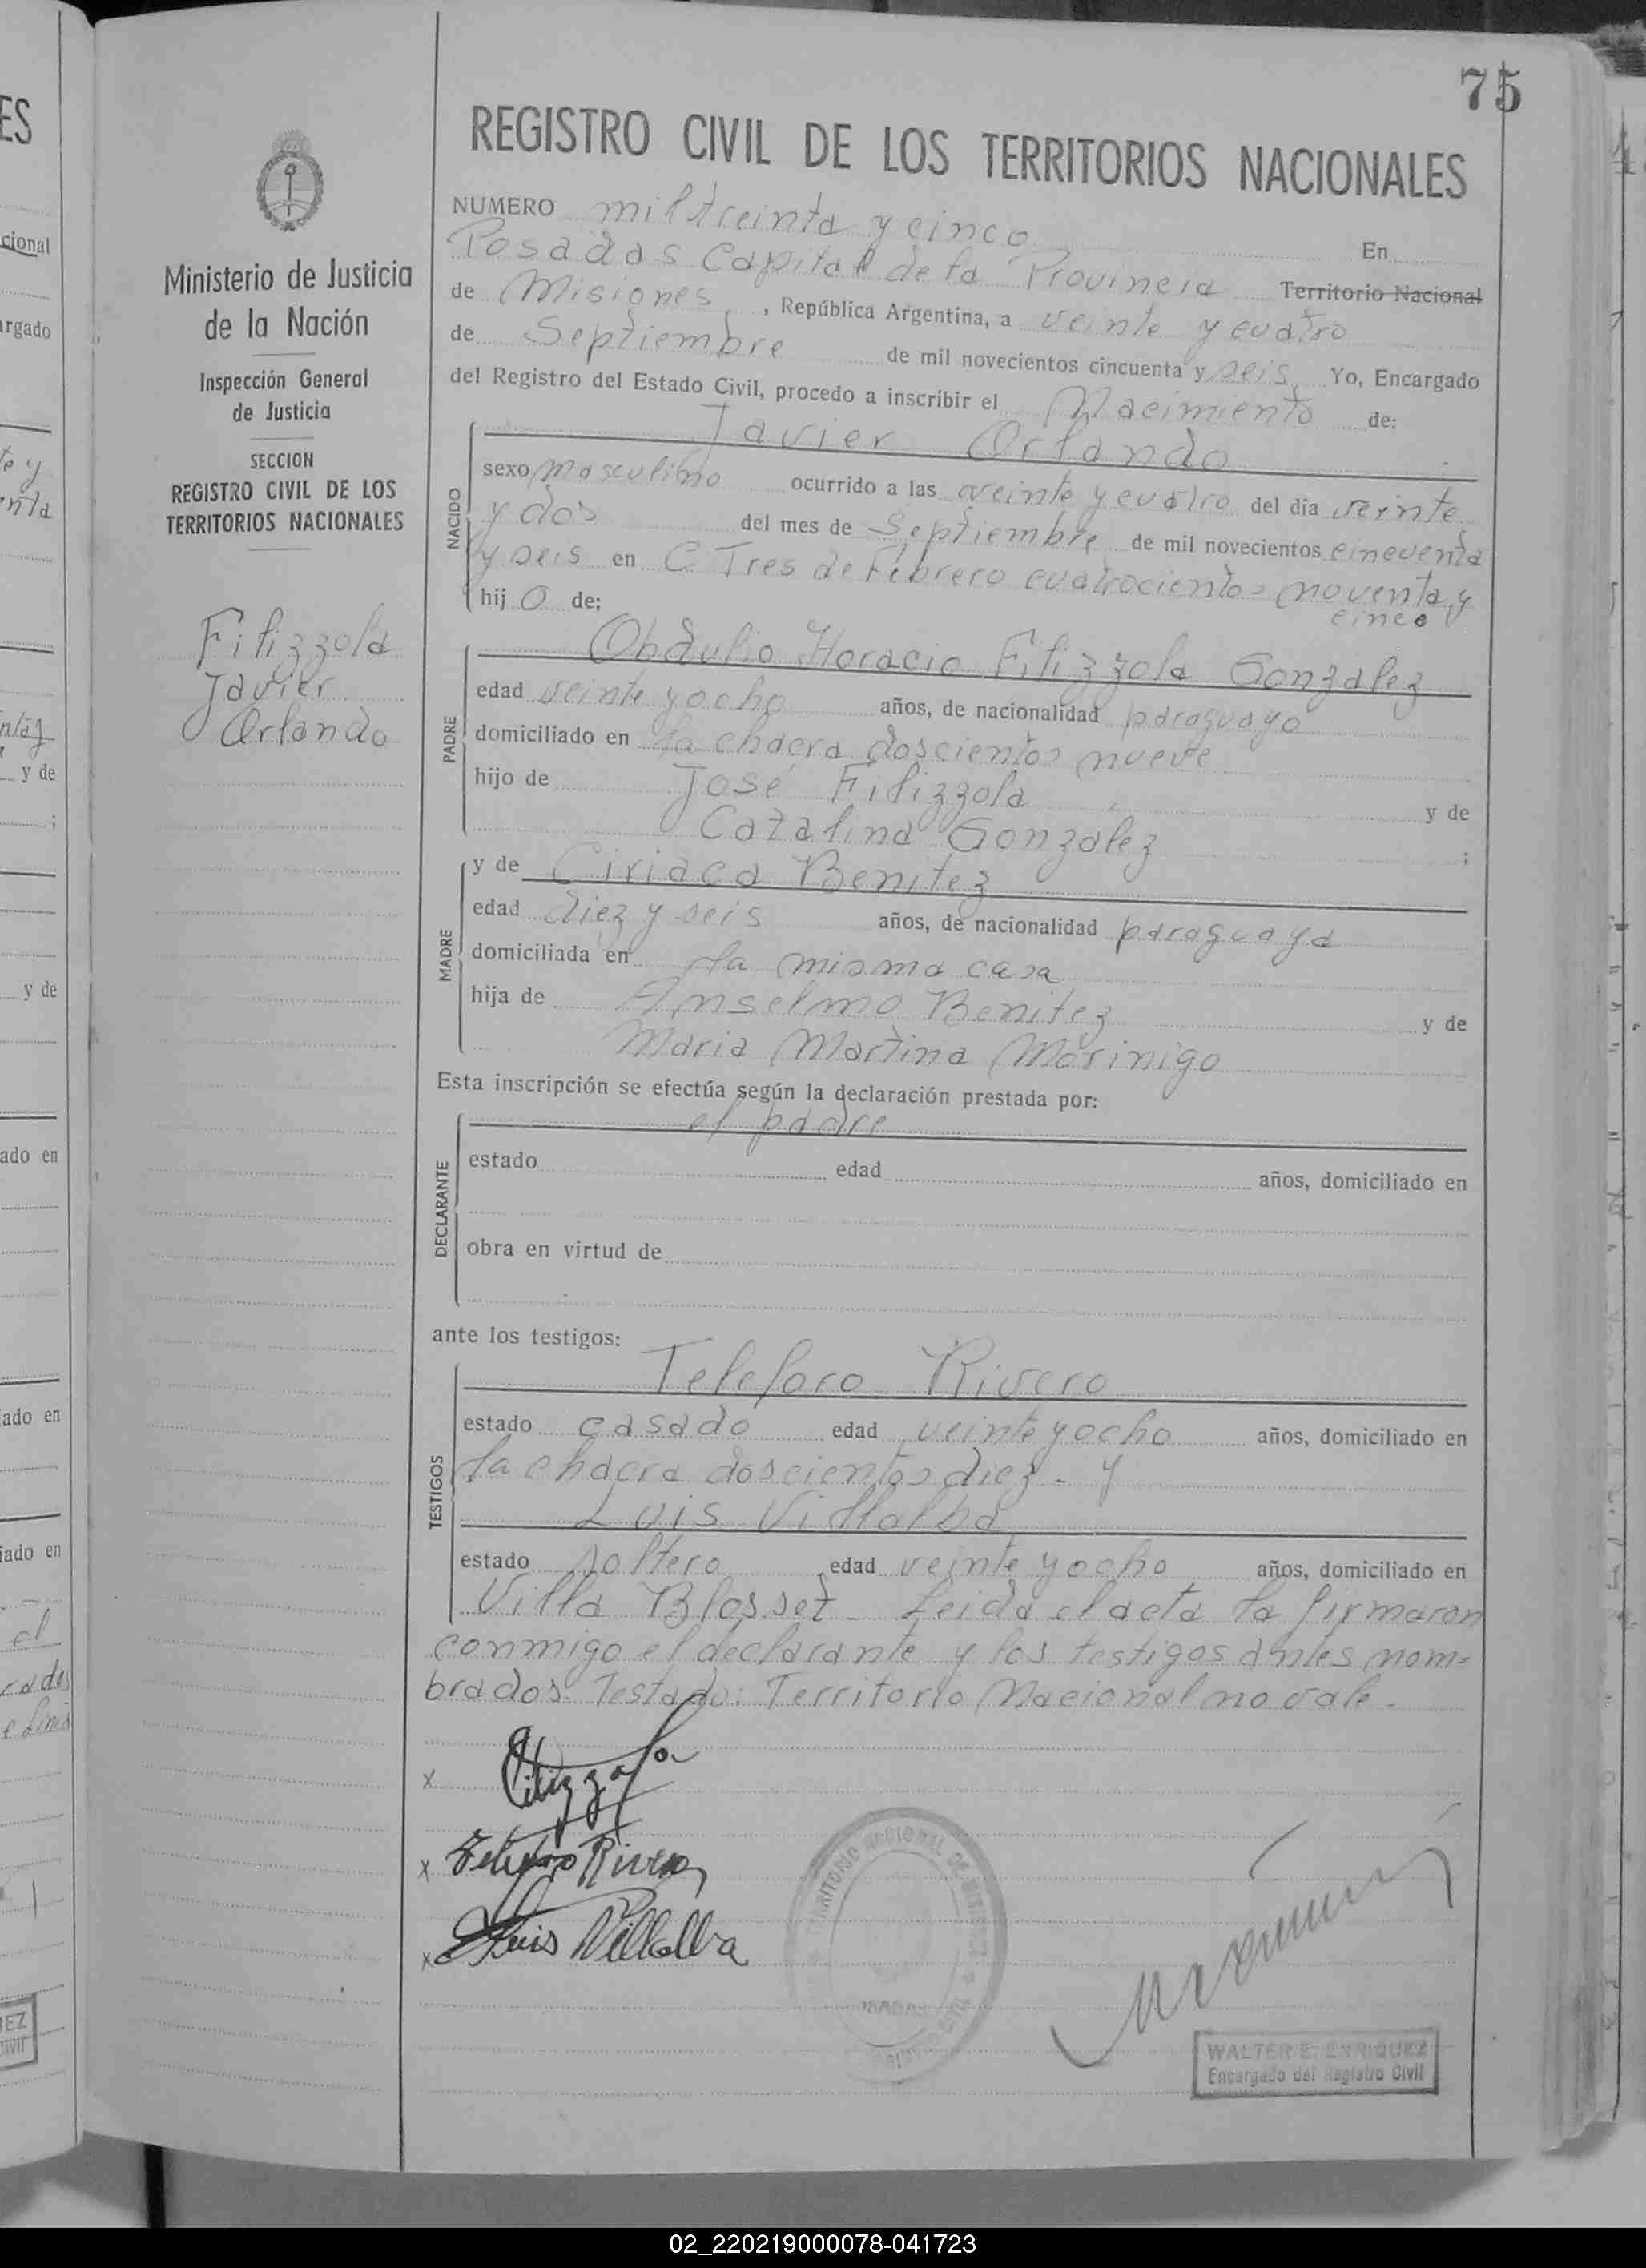 75
REGISTRO CIVIL DE LOS TERRITORIOS NACIONALES
Ministerio de Justicia
de la Nación
Inspección General
de Justicia
SECCION
REGISTRO CIVIL DE LOS
TERRITORIOS NACIONALES
Filizzola
Javier
Orlando
NUMERO mil treinta y cinco En
Posadas Capital de la Provincia Territorio Nacional
de Misiones, República Argentina, a veinte y cuatro
de Septiembre de mil novecientos cincuenta y seis, Yo, Encargado
del Registro del Estado Civil, procedo a inscribir el Nacimiento de:
Javier Orlando
NACIDO
sexo masculino ocurrido a las veinte y cuatro del día veinte
y dos del mes de Septiembre de mil novecientos cincuenta
y seis en C Tres de Febrero cuatrocientos noventa y
cinco
hijo de;
Obdulio Horacio Filizzola Gonzalez
PADRE
edad veinte y ocho años, de nacionalidad paraguayo
domiciliado en la chacra doscientos nueve
hijo de José Filizzola y de
Catalina Gonzalez ;
MADRE
y de Ciriaca Benitez
edad diez y seis años, de nacionalidad paraguaya
domiciliada en la misma casa
hija de Anselmo Benitez y de
Maria Martina Morinigo
Esta inscripción se efectúa según la declaración prestada por:
el padre
DECLARANTE
estado edad años, domiciliado en
obra en virtud de
ante los testigos:
Telesforo Rivero
TESTIGOS
estado casado edad veinte y ocho años, domiciliado en
la chacra doscientos diez - y
Luis Villalba
estado soltero edad veinte y ocho años, domiciliado en
Villa Blosset - Leida el acta la firmaron
conmigo el declarante y los testigos antes nom=
brados. Testado: Territorio Nacional no vale.
x Filizzola
x Telesforo Rivero
x Luis Villalba
WALTER E. ENRIQUEZ
Encargado del Registro Civil
02_220219000078-041723